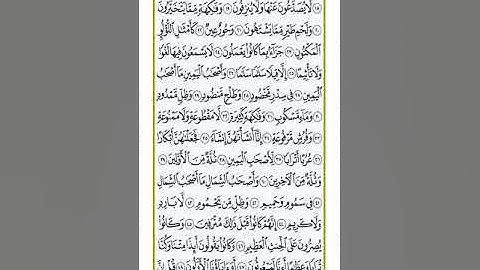 ١٨ لَّا يُصَدَّعُونَ عَنْهَا وَلَا يُنزِفُونَ ١٩ وَفَٰكِهَةٍ مِّمَّا يَتَخَيَّرُونَ
٢٠ وَلَحْمِ طَيْرٍ مِّمَّا يَشْتَهُونَ ٢١ وَحُورٌ عِينٌ ٢٢ كَأَمْثَٰلِ ٱللُّؤْلُؤِ
ٱلْمَكْنُونِ ٢٣ جَزَآءًۢ بِمَا كَانُوا۟ يَعْمَلُونَ ٢٤ لَا يَسْمَعُونَ فِيهَا لَغْوًا
وَلَا تَأْثِيمًا ٢٥ إِلَّا قِيلًا سَلَٰمًا سَلَٰمًا ٢٦ وَأَصْحَٰبُ ٱلْيَمِينِ مَآ أَصْحَٰبُ
ٱلْيَمِينِ ٢٧ فِى سِدْرٍ مَّخْضُودٍ ٢٨ وَطَلْحٍ مَّنضُودٍ ٢٩ وَظِلٍّ مَّمْدُودٍ
٣٠ وَمَآءٍ مَّسْكُوبٍ ٣١ وَفَٰكِهَةٍ كَثِيرَةٍ ٣٢ لَّا مَقْطُوعَةٍ وَلَا مَمْنُوعَةٍ
٣٣ وَفُرُشٍ مَّرْفُوعَةٍ ٣٤ إِنَّآ أَنشَأْنَٰهُنَّ إِنشَآءً ٣٥ فَجَعَلْنَٰهُنَّ أَبْكَارًا
٣٦ عُرُبًا أَتْرَابًا ٣٧ لِّأَصْحَٰبِ ٱلْيَمِينِ ٣٨ ثُلَّةٌ مِّنَ ٱلْأَوَّلِينَ ٣٩
وَثُلَّةٌ مِّنَ ٱلْءَاخِرِينَ ٤٠ وَأَصْحَٰبُ ٱلشِّمَالِ مَآ أَصْحَٰبُ ٱلشِّمَالِ
٤١ فِى سَمُومٍ وَحَمِيمٍ ٤٢ وَظِلٍّ مِّن يَحْمُومٍ ٤٣ لَّا بَارِدٍ
وَلَا كَرِيمٍ ٤٤ إِنَّهُمْ كَانُوا۟ قَبْلَ ذَٰلِكَ مُتْرَفِينَ ٤٥ وَكَانُوا۟
يُصِرُّونَ عَلَى ٱلْحِنثِ ٱلْعَظِيمِ ٤٦ وَكَانُوا۟ يَقُولُونَ أَئِذَا مِتْنَا وَكُنَّا
تُرَابًا وَعِظَٰمًا أَءِنَّا لَمَبْعُوثُونَ ٤٧ أَوَءَابَآؤُنَا ٱلْأَوَّلُونَ ٤٨ قُلْ إِنَّ